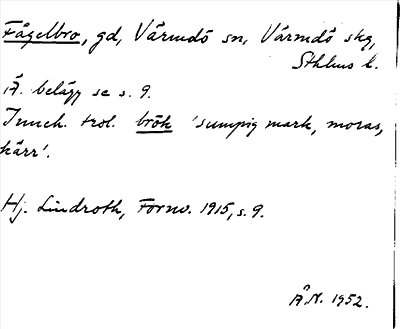 Fågelbro, gd, Värmdö sn, Värmdö skg,
Sthlms l.
Ä. belägg se s. 9.
Inneh. trol. brōk 'sumpig mark, moras,
kärr'.
Hj. Lindroth, Fornv. 1915, s. 9.
Å.N. 1952.